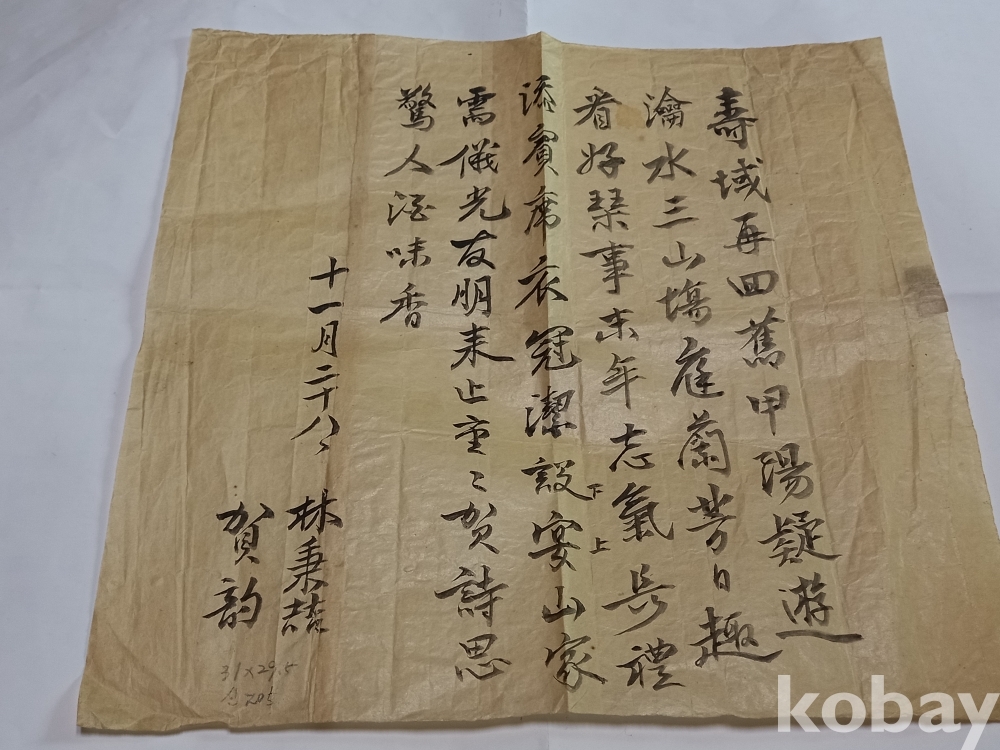 壽域再回舊甲陽疑遊
瀹水三山塲庭蘭芳日趣
看好琴事末年志氣長禮
添賓席衣冠潔設下宴上山家
需儀光友朋来止重〻賀詩思
驚人酒味香
十一月二十八〻
林秉喆
賀韵
31×29.5
kobay